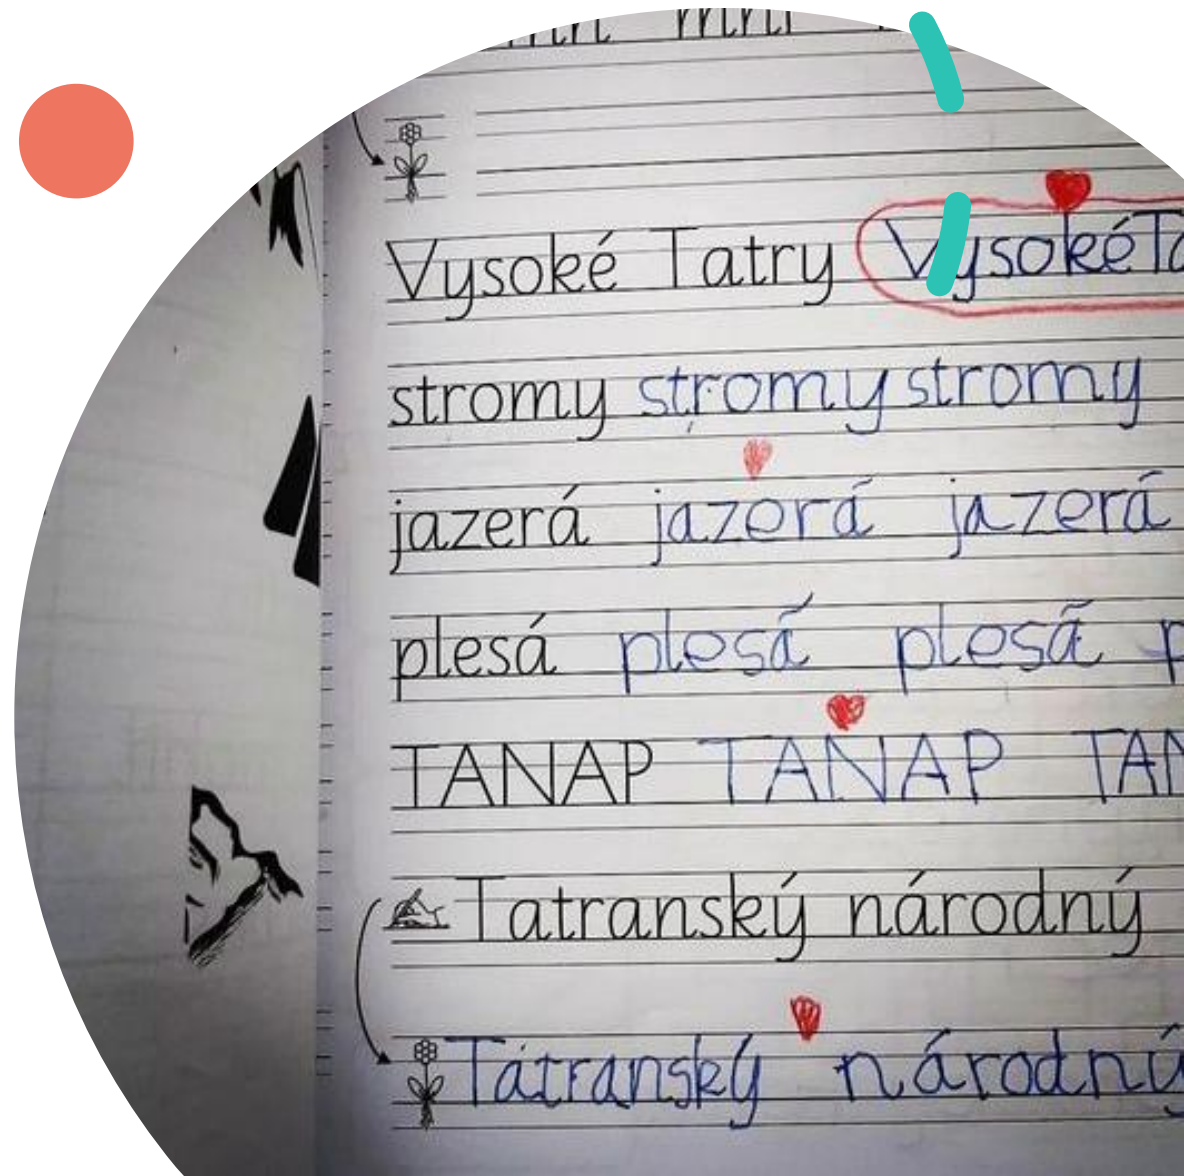 Vysoké Tatry Vysoké
stromy stromy stromy
jazerá jazerá jazerá
plesá plesá plesá
TANAP TANAP
Tatranský národný
Tatranský národný